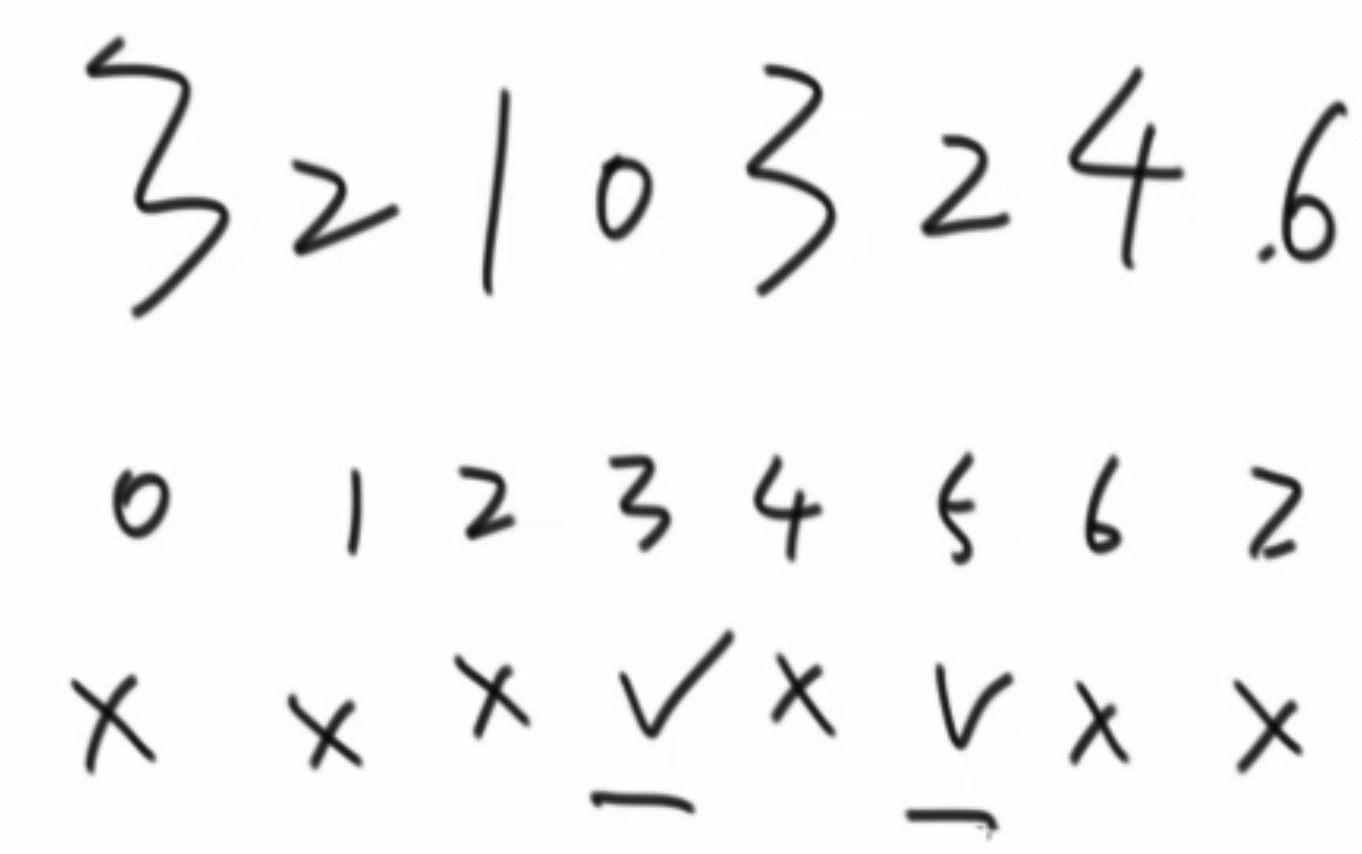 3 2 1 0 3 2 4 .6
0 1 2 3 4 5 6 2
× × × ✓ × ✓ × ×